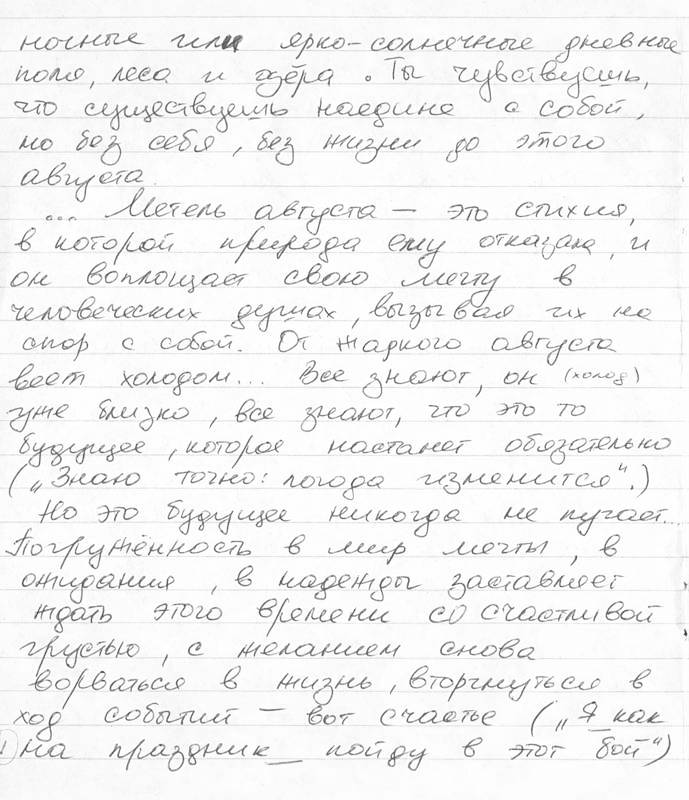 ночные или ярко-солнечные дневные
поля, леса и озёра. Ты чувствуешь,
что существуешь наедине с собой,
но без себя, без жизни до этого
августа.
... Метель августа — это стихия,
в которой природа ему отказала, и
он воплощает свою мечту в
человеческих душах, вызывая их на
спор с собой. От жаркого августа
веет холодом... Все знают, он (холод)
уже близко, все знают, что это то
будущее, которое настанет обязательно
(„Знаю точно: погода изменится".)
Но это будущее никогда не пугает...
Погружённость в мир мечты, в
ожидания, в надежды заставляет
ждать этого времени со счастливой
грустью, с желанием снова
ворваться в жизнь, вторгнуться в
ход событий — вот счастье („Я как
на праздник_ пойду в этот бой")